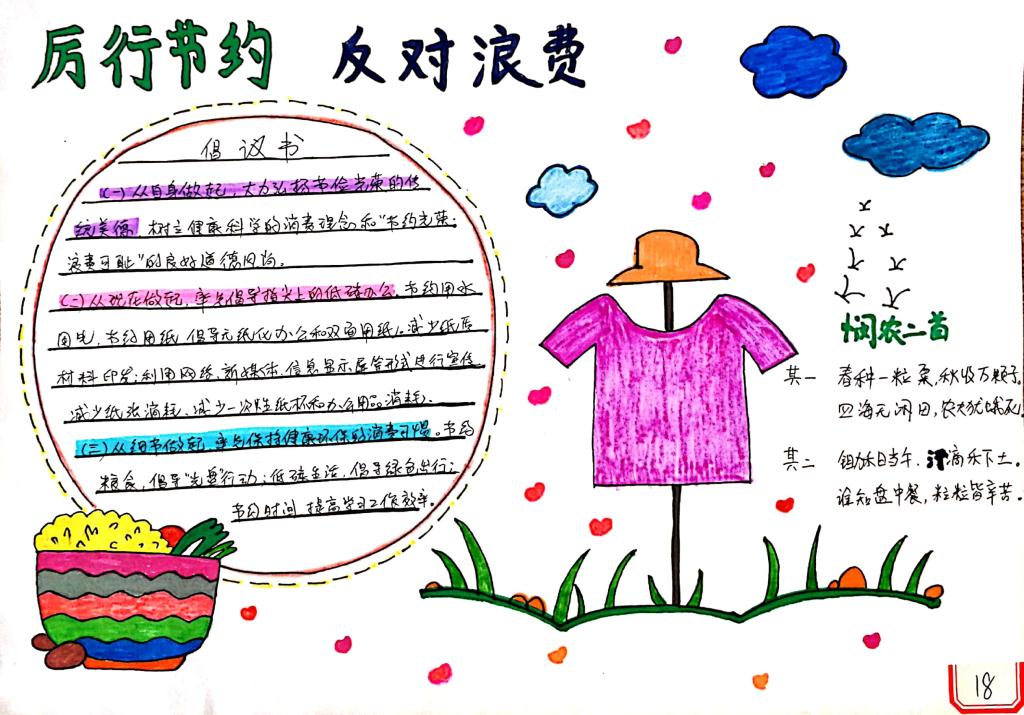 厉行节约 反对浪费
倡议书
(一)从自身做起,大力弘扬节俭光荣的传
统美德,树立健康科学的消费理念和"节约光荣;
浪费可耻"的良好道德风尚。
(二)从现在做起,率先倡导指尖上的低碳办公。节约用水
用电,节约用纸,倡导无纸化办公和双面用纸,减少纸质
材料印发;利用网络、新媒体、信息显示屏等形式进行宣传,
减少纸张消耗、减少一次性纸杯和办公用品消耗。
(三)从细节做起,率先保持健康环保的消费习惯。节约
粮食,倡导"光盘"行动;低碳生活,倡导绿色出行;
节约时间,提高学习工作效率。
悯农二首
其一 春种一粒粟,秋收万颗子。
四海无闲田,农夫犹饿死
其二 锄禾日当午,汗滴禾下土。
谁知盘中餐,粒粒皆辛苦。
18